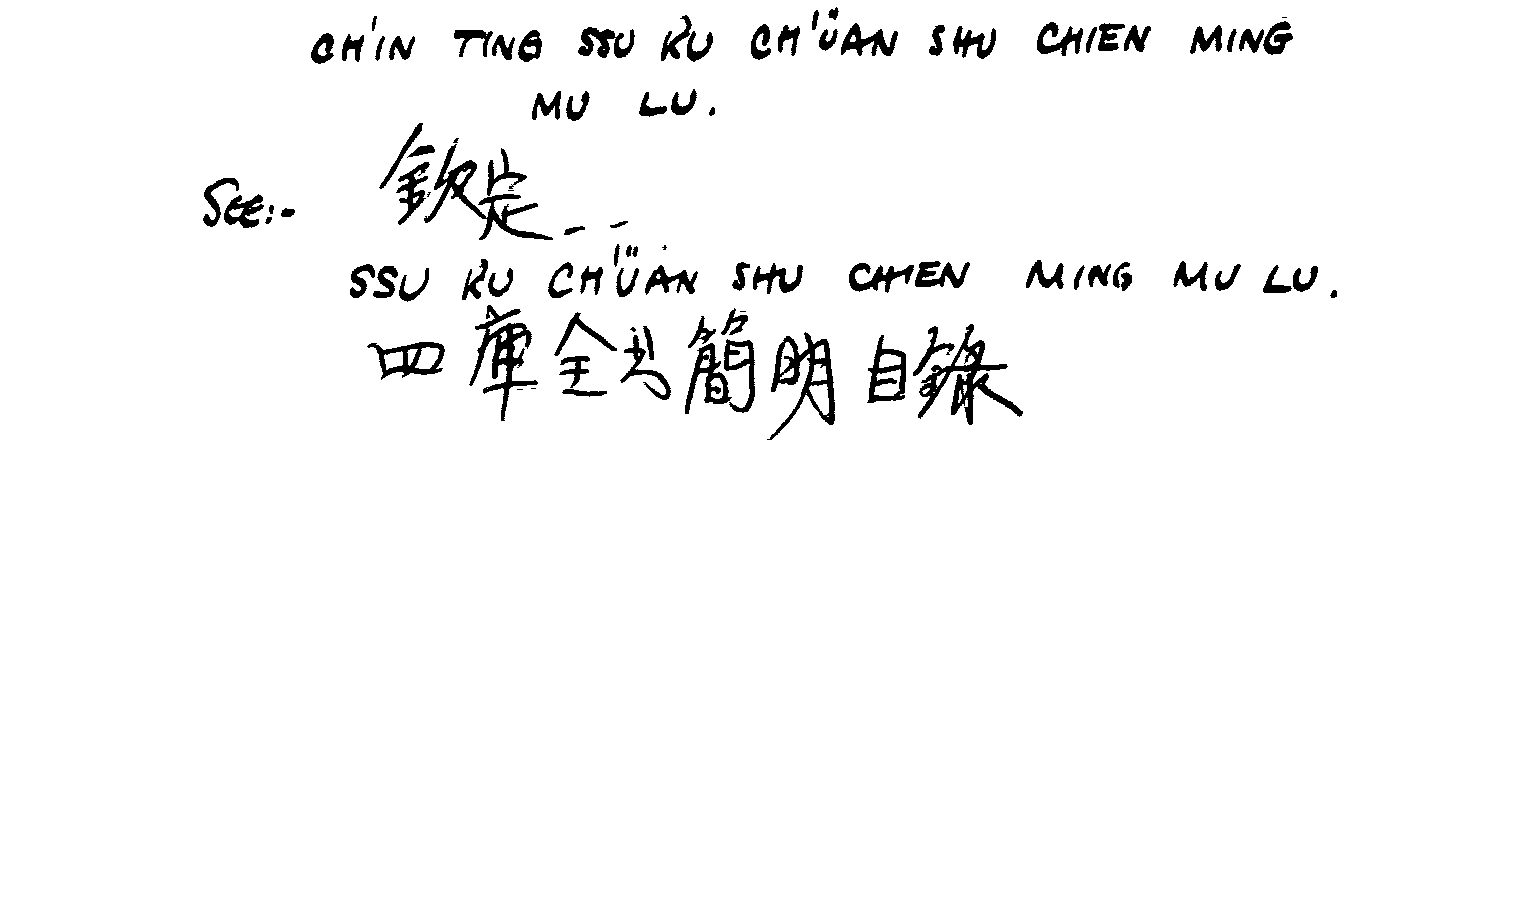 CH'IN TING SSU KU CH'ÜAN SHU CHIEN MING
MU LU.
欽定--
SEE:-
SSU KU CH'ÜAN SHU CHIEN MING MU LU.
四庫全书簡明目錄